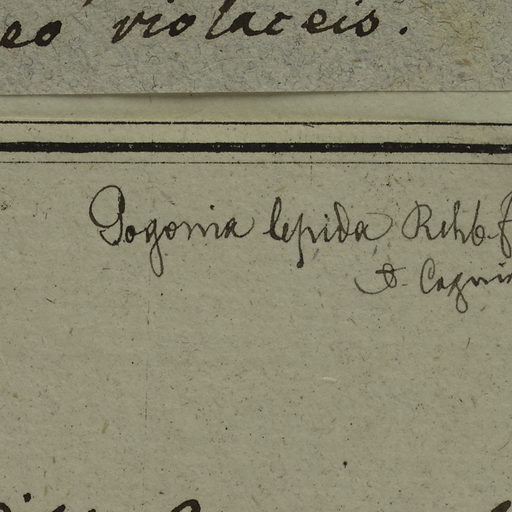 eo violaceis.
Pogonia lepida Rchb. f
A. Cogni